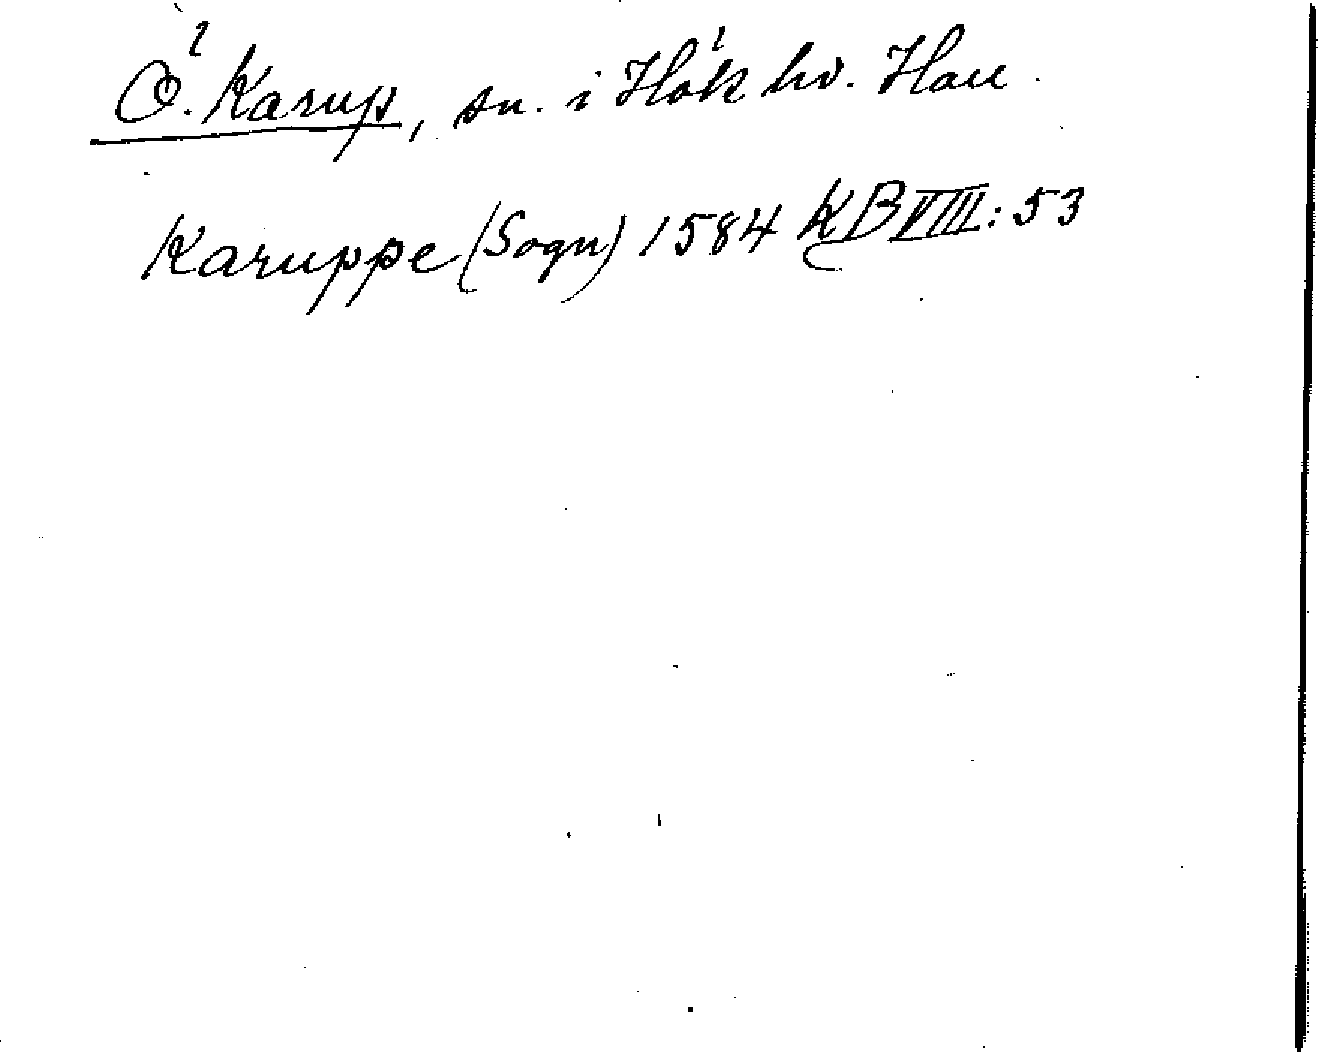 Ö. Karup, sn. i Höks hd. Hall.
Karuppe (Sogn) 1584 KB VIII: 53